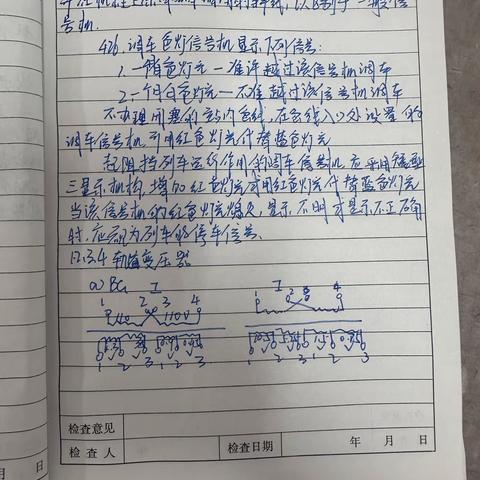 号机.
426. 调车色灯信号机显示下列信号:
1. 一个月白色灯光一准许越过该信号机调车
2. 一个
色灯光一不准越过该信号机调车
不办理闭塞的站内岔线,在岔线入口处设置的
调车信号机可用红色灯光代替蓝色灯光
起阻挡列车运行作用的调车信号机,应采用
三显示机构,增加红色灯光或用红色灯光代替蓝色灯光
当该信号机的红色灯光熄灭,显示不明或显示不正确
时,应视为列车的停车信号.
12.3.4 轨道变压器
a) BG I
I
1 2 3 4
110V 110V
1 2 3 1 2 3
1 2 3 1 2 3
检查意见
检查人
检查日期
年 月 日
月 日